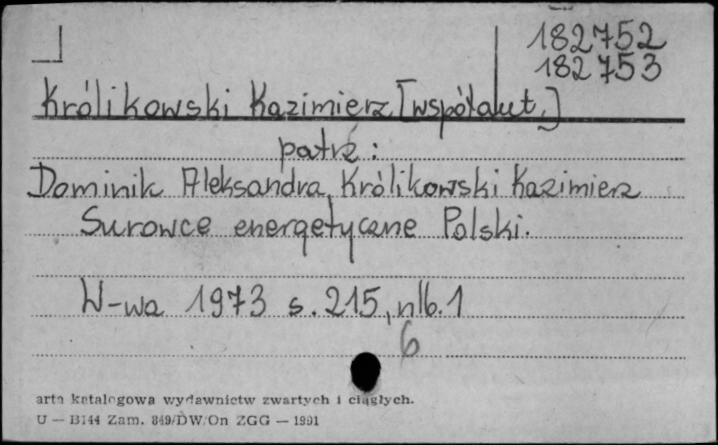 182752
182753
Królikowski Kazimierz [współaut.]
patrz:
Dominik Aleksandra, Królikowski Kazimierz
Surowce energetyczne Polski.
W-wa 1973 s. 215, nlb. 1
6
arta katalogowa wydawnictw zwartych i ciągłych.
U — B144 Zam. 849/DW/On ZGG — 1991